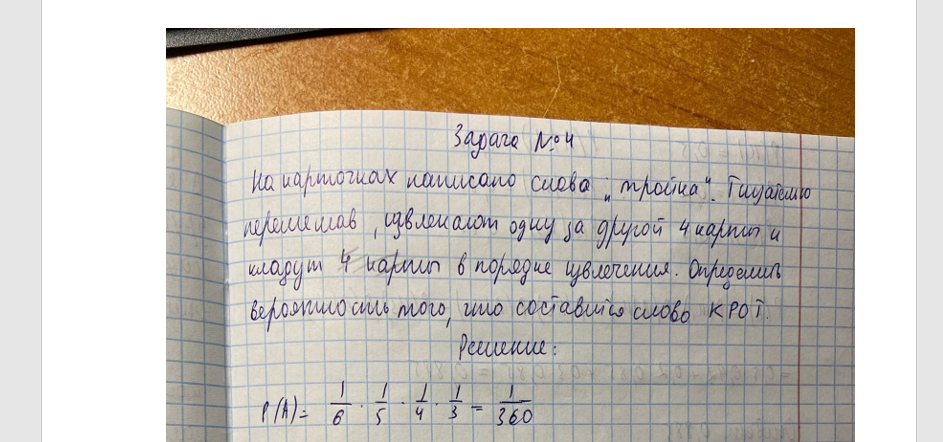 Задача №4
На карточках написано слова „тройка". Тщательно
перемешав, извлекают одну за другой 4 карты и
кладут 4 карты в порядке извлечения. Определить
вероятность того, что составится слово КРОТ.
Решение:
P(A)= 1/6 · 1/5 · 1/4 · 1/3 = 1/360